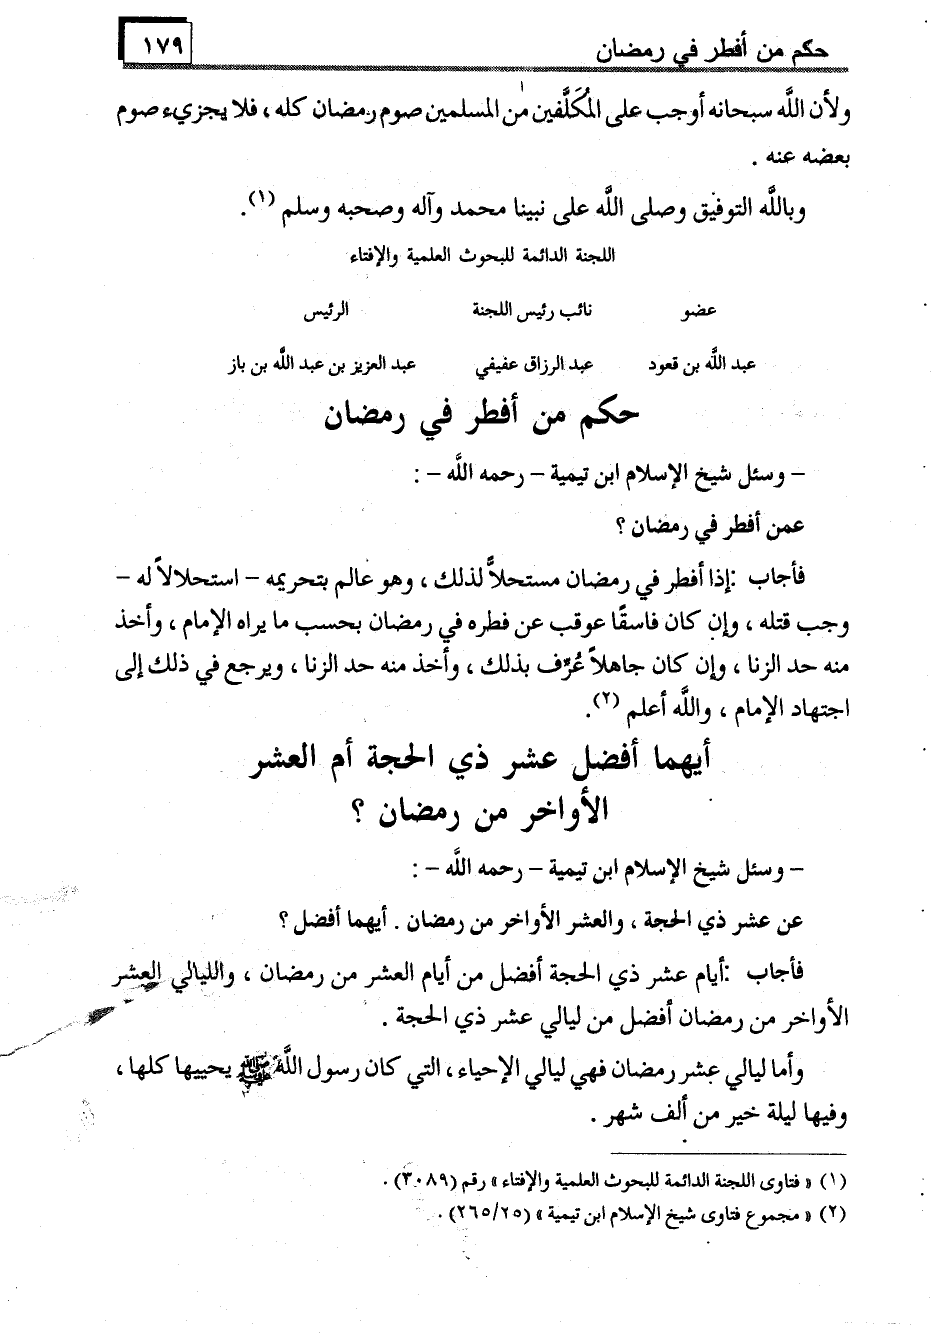 حكم من أفطر في رمضان
١٧٩
ولأن اللَّه سبحانه أوجب على المُكَلَّفين من المسلمين صوم رمضان كله ، فلا يجزيء صوم
بعضه عنه .
وباللَّه التوفيق وصلى اللَّه على نبينا محمد وآله وصحبه وسلم (١).
اللجنة الدائمة للبحوث العلمية والإفتاء
عضو نائب رئيس اللجنة الرئيس
عبد اللَّه بن قعود عبد الرزاق عفيفي عبد العزيز بن عبد اللَّه بن باز
حكم من أفطر في رمضان
– وسئل شيخ الإسلام ابن تيمية – رحمه اللَّه – :
عمن أفطر في رمضان ؟
فأجاب :إذا أفطر في رمضان مستحلاًّ لذلك ، وهو عالم بتحريمه – استحلالاً له –
وجب قتله ، وإن كان فاسقًا عوقب عن فطره في رمضان بحسب ما يراه الإمام ، وأخذ
منه حد الزنا ، وإن كان جاهلاً عُرِّف بذلك ، وأخذ منه حد الزنا ، ويرجع في ذلك إلى
اجتهاد الإمام ، واللَّه أعلم (٢).
أيهما أفضل عشر ذي الحجة أم العشر
الأواخر من رمضان ؟
– وسئل شيخ الإسلام ابن تيمية – رحمه اللَّه – :
عن عشر ذي الحجة ، والعشر الأواخر من رمضان . أيهما أفضل ؟
فأجاب :أيام عشر ذي الحجة أفضل من أيام العشر من رمضان ، والليالي العشر
الأواخر من رمضان أفضل من ليالي عشر ذي الحجة .
وأما ليالي عشر رمضان فهي ليالي الإحياء ، التي كان رسول اللَّه ﷺ يحييها كلها ،
وفيها ليلة خير من ألف شهر .
(١) « فتاوى اللجنة الدائمة للبحوث العلمية والإفتاء » رقم (٣٠٨٩) .
(٢) « مجموع فتاوى شيخ الإسلام ابن تيمية » (٢٦٥/٢٥) .